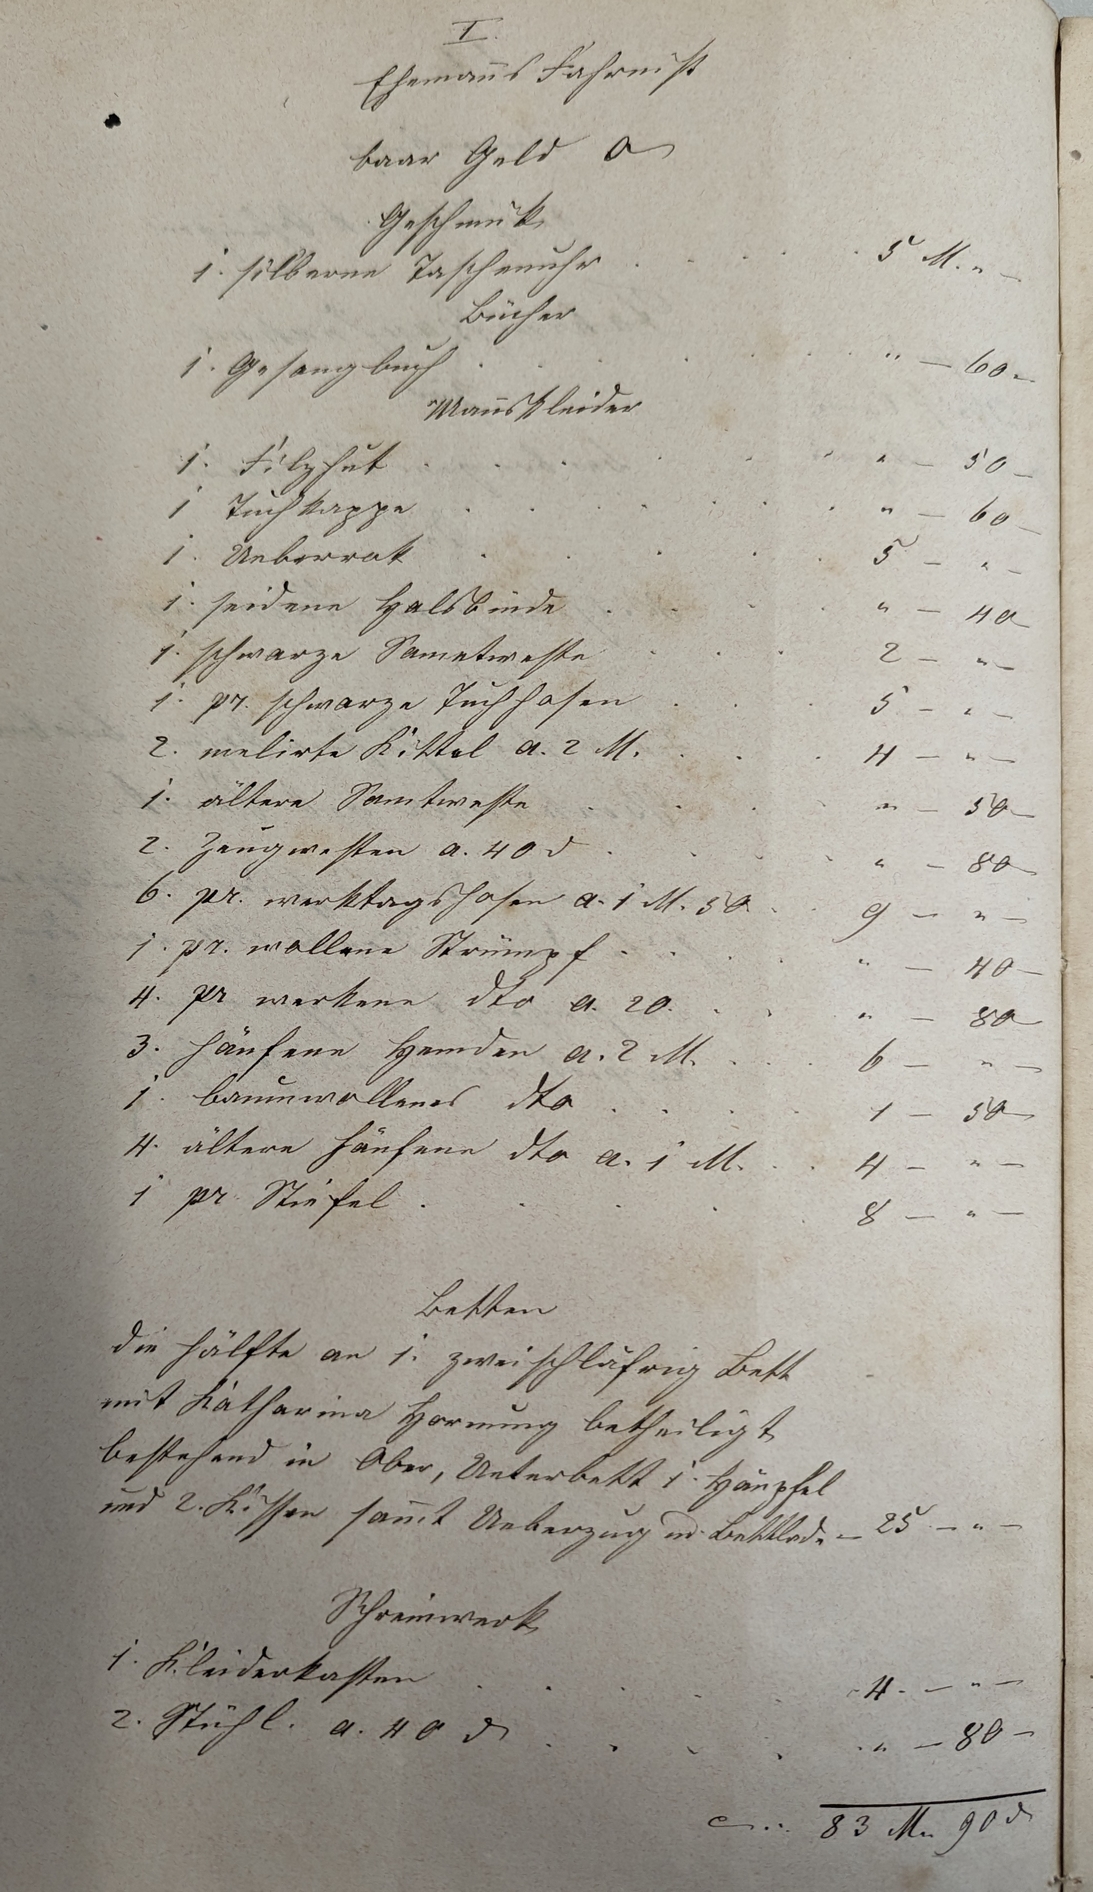 I.
Ehemanns Fahrniß
baar Geld 0
Geschmuk
1. silberne Taschenuhr . . . . . 5 M. " —
Bücher
1. Gesangbuch . . . . . " — 60 —
Mannskleider
1. Filzhut . . . . . " — 50 —
1 Tuchkappe . . . . . " — 60 —
1. Ueberrok . . . . . 5 — " —
1. seidene Halsbinde . . . . " — 40
1. schwarze Sametweste . . . 2 — " —
1. pr. schwarze Tuchhosen . . . 5 — " —
2. melirte Kittel a. 2 M. . . . 4 — " —
1. ältere Samtweste . . . . " — 50 —
2. Zeugwesten a. 40 d . . . . " — 80
6. pr. werktagshosen a. 1 M. 50 . . 9 — " —
1. pr. wollene Strümpf . . . . " — 40 —
4. pr werkene dto a. 20. . . " — 80
3. hänfene Hemden a. 2 M. . . . 6 — " —
1. baumwollenes dto . . . . 1 — 50
4. ältere hänfene dto a. 1 M. . . 4 — " —
1 pr Stiefel . . . . . 8 — " —
Betten
die hälfte an 1. zweischläfrig Bett
mit Katharina Hornung betheiligt
bestehend in Ober, Unterbett 1. Häupfel
und 2. Kissen sammt Ueberzug u. Bettlade — 25 — " —
Schreinwerk
1. Kleiderkasten . . . . . 4. — " —
2. Stühl. a. 40 d . . . . " — 80 —
83 M. 90 d